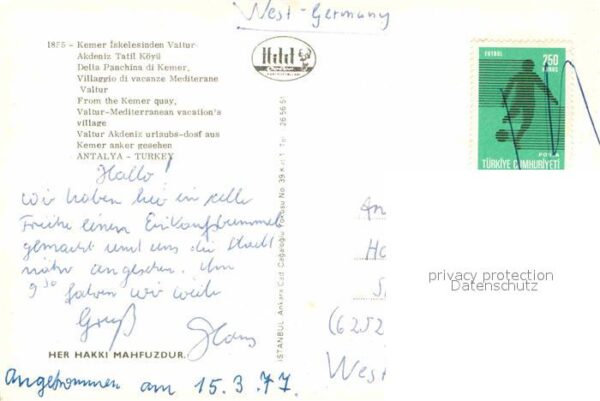 West-Germany
1855 - Kemer İskelesinden Valtur
Akdeniz Tatil Köyü
Della Paschina di Kemer,
Villaggio di vacanze Mediterane
Valtur
From the Kemer quay,
Valtur-Mediterranean vacation's
village
Valtur Akdeniz urlaubs-dosf aus
Kemer anker gesehen
ANTALYA - TURKEY
FUTBOL
250
KURUŞ
POSTA
TÜRKİYE CUMHURİYETİ
Hallo!
Wir haben hier in aller
Frühe einen Einkaufsbummel
gemacht und uns die Stadt
näher angesehen. Um
9 30 fahren wir weiter
Gruß
Hans
HER HAKKI MAHFUZDUR.
Angekommen am 15.3.77.
İSTANBUL Ankara Cad. Cağaloğlu Yokuşu No. 39 Kat: 1 Tel: 26 56 51
An
Ha
S
(6252
West
privacy protection
Datenschutz